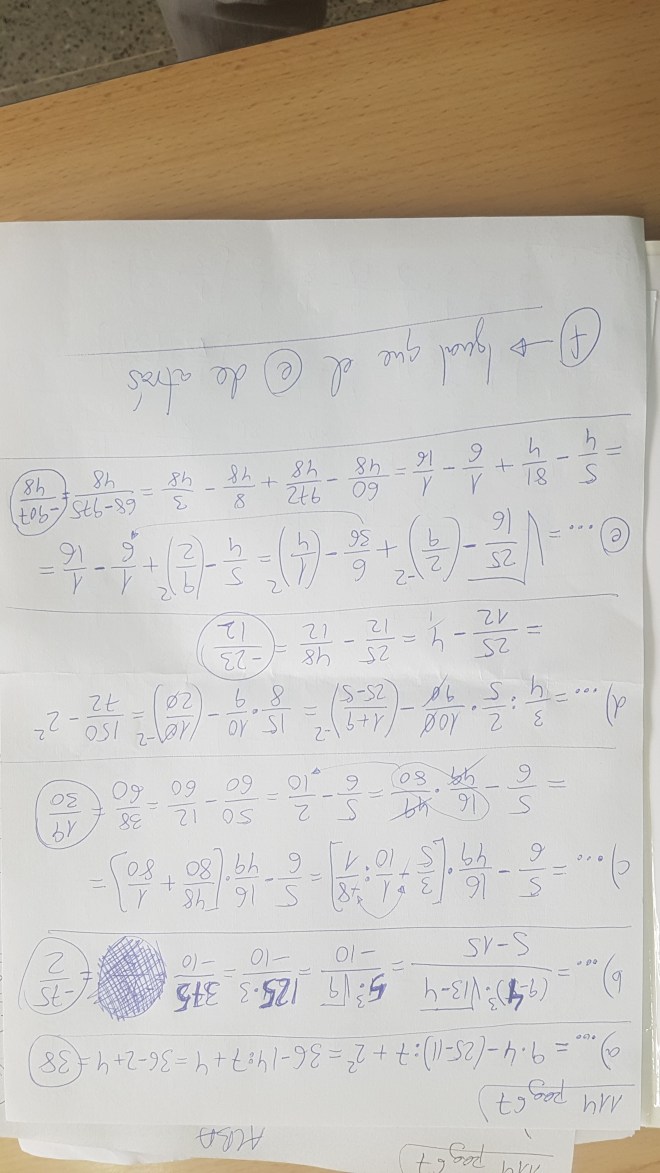 114 pag 67
ALBA
114 pag 67
a) ... = 9·4-(25-11):7+2² = 36-14:7+4 = 36-2+4 = 38
b) ... = (9-4)³·√(13-4)/(5-15) = 5³·√9/-10 = 125·3/-10 = 375/-10 = -75/2
c) ... = 5/6 - 16/49·[3/5 + 1/10 : 8/1] = 5/6 - 16/49·[48/80 + 1/80] =
= 5/6 - 16/49·49/80 = 5/6 - 2/10 = 50/60 - 12/60 = 38/60 = 19/30
d) ... = 3/4 : 2/5 · 100/90 - ((1+9)/(25-5))⁻² = 15/8·10/9 - (10/20)⁻² = 150/72 - 2²
= 25/12 - 4/1 = 25/12 - 48/12 = -23/12
e ... = √(25/16) - (2/9)⁻² + 6/36 - (1/4)² = 5/4 - (9/2)² + 1/6 - 1/16 =
= 5/4 - 81/4 + 1/6 - 1/16 = 60/48 - 972/48 + 8/48 - 3/48 = (68-975)/48 = -907/48
f → Igual que el e de atrás